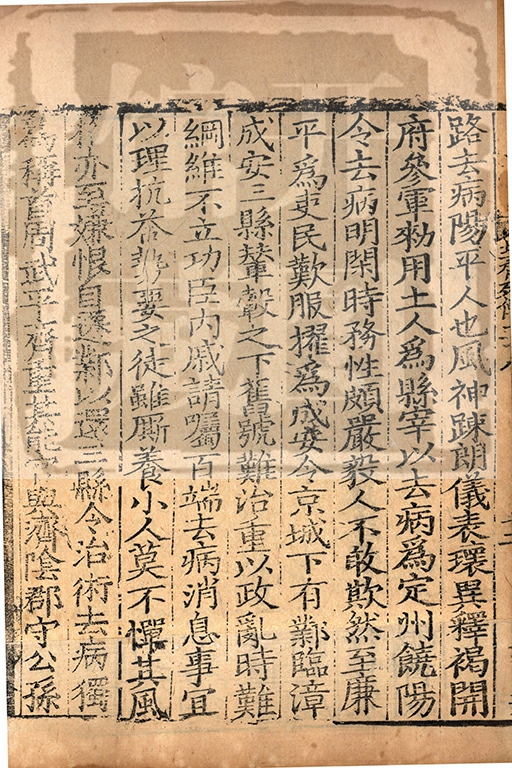 路去病陽平人也風神踈朗儀表環異釋褐開
府參軍勑用土人爲縣宰以去病爲定州饒陽
令去病明閑時務性頗嚴毅人不敢欺然至廉
平爲吏民歎服擢爲成安令京城下有鄴臨漳
成安三縣輦轂之下舊號難治重以政亂時難
綱維不立功臣内戚請囑百端去病消息事宜
以理抗荅勢要之徒雖厮養小人莫不憚其風
格亦至嫌恨自遷鄴以還三縣令治術去病獨
爲稱首周武平齊重其能官與濟陰郡守公孫